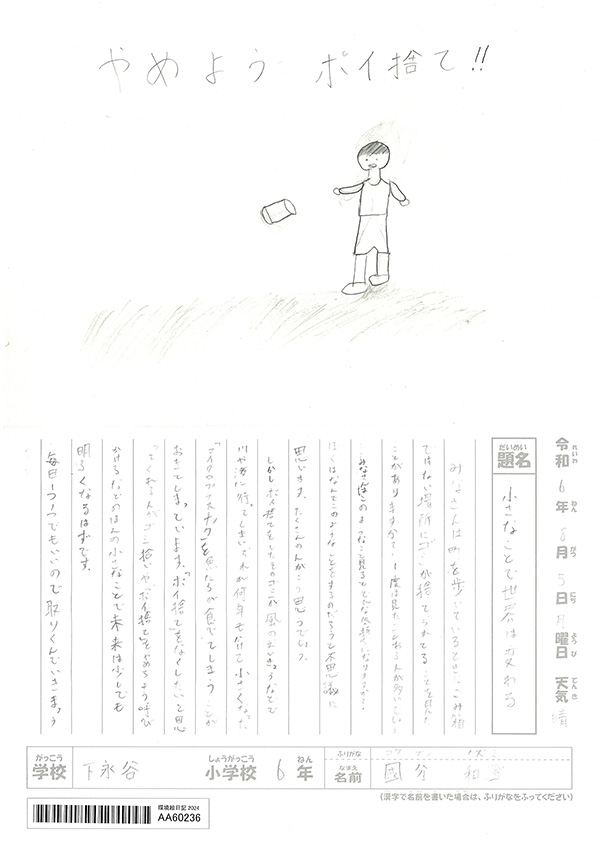 やめよう ポイ捨て!!
令和 6年 8月 5日 月曜日 天気 晴
れいわ ねん がつ にち ようび てんき
だいめい
題名 小さなことで世界は変わる
みなさんは町を歩いているとき、ごみ箱
ではない場所にゴミが捨てられてることを見た
ことがありますか? 1度は見たことある人が多いでしょう
みなさんはこのようなこと見るとどんな気持ちになりますか?
ぼくはなんでこのようなことをするのだろうと不思議に
思います。たくさんの人がこう思うでしょう。
しかしポイ捨てをしたものゴミが風のえいきょうなどで
川や海に行ってしまいそれが何年もかけて小さくなった
「マイクロプラスチック」を魚たちが食べてしまうことが
おきてしまっています。「ポイ捨て」をなくしたいと思
ってくれる人がゴミ捨いや「ポイ捨て」をやめるよう呼び
かけるなどのほんの小さなことで未来は少しでも
明るくなるはずです。
毎日1つ1つでもいいので取りくんでいきましょう
がっこう しょうがっこう ねん ふりがな
学校 下永谷 小学校 6年
なまえ
名前 國分 和
(漢字で名前を書いた場合は、ふりがなをふってください)
環境絵日記 2024
AA60236